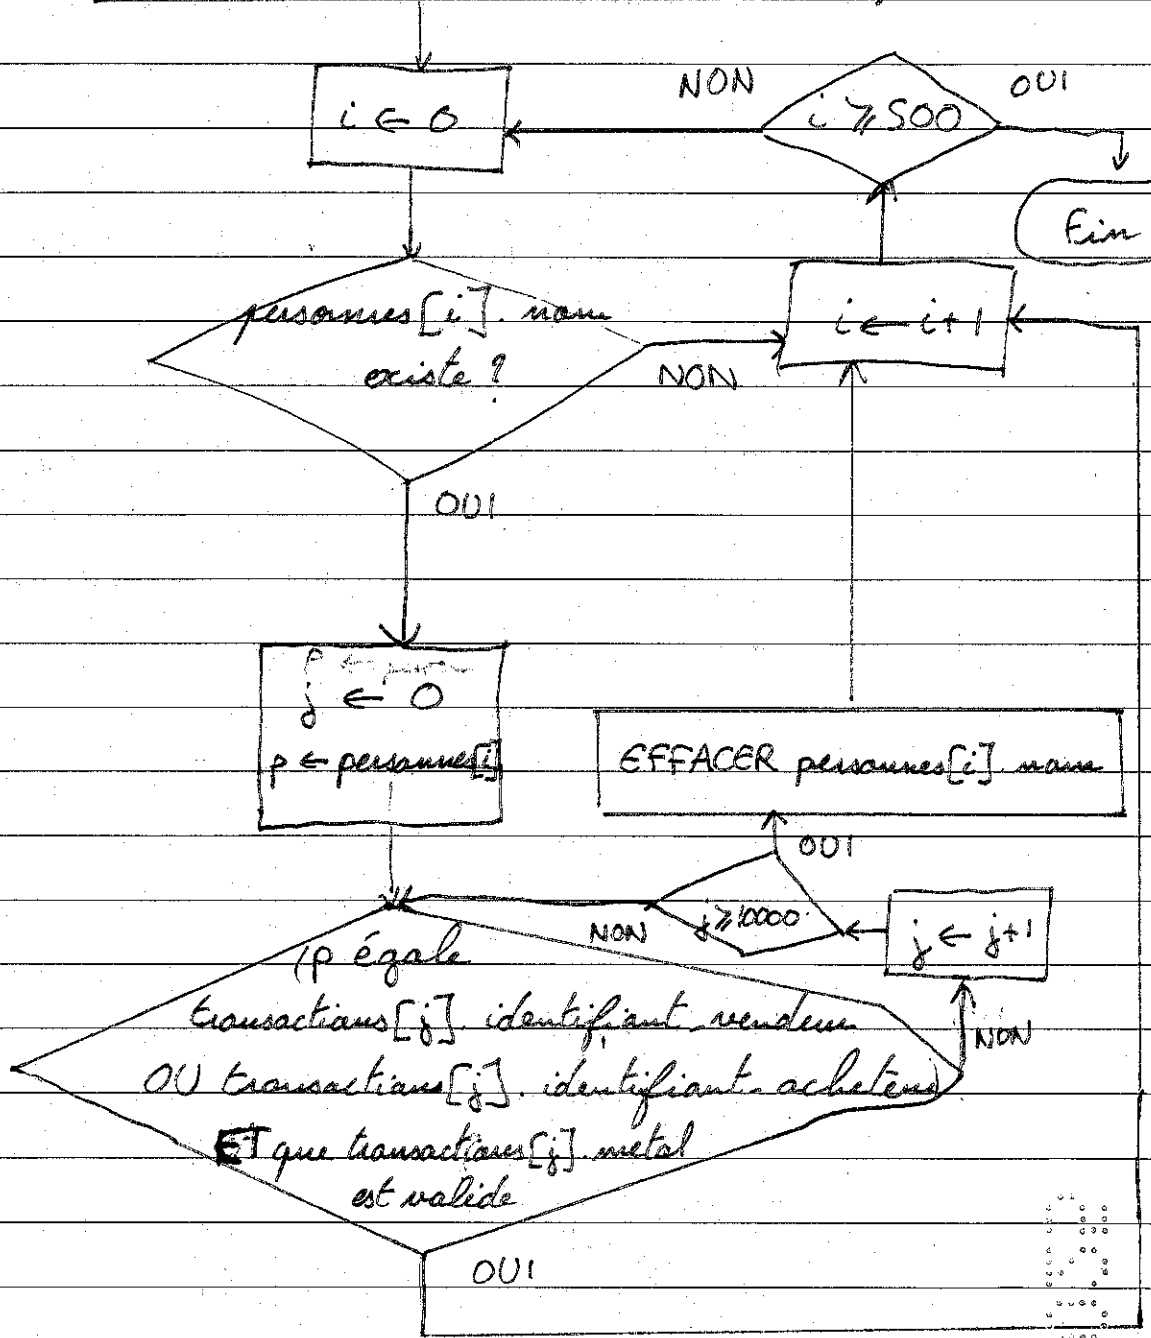 i ← 0
NON
i ⩾ 500
OUI
Fin
personnes[i].nom
existe ?
NON
i ← i+1
OUI
j ← 0
p ← personnes[i]
EFFACER personnes[i].nom
OUI
j ⩾ 10000
NON
j ← j+1
(p égale
transactions[j].identifiant_vendeur
OU transactions[j].identifiant_acheteur)
NON
ET que transactions[j].metal
est valide
OUI